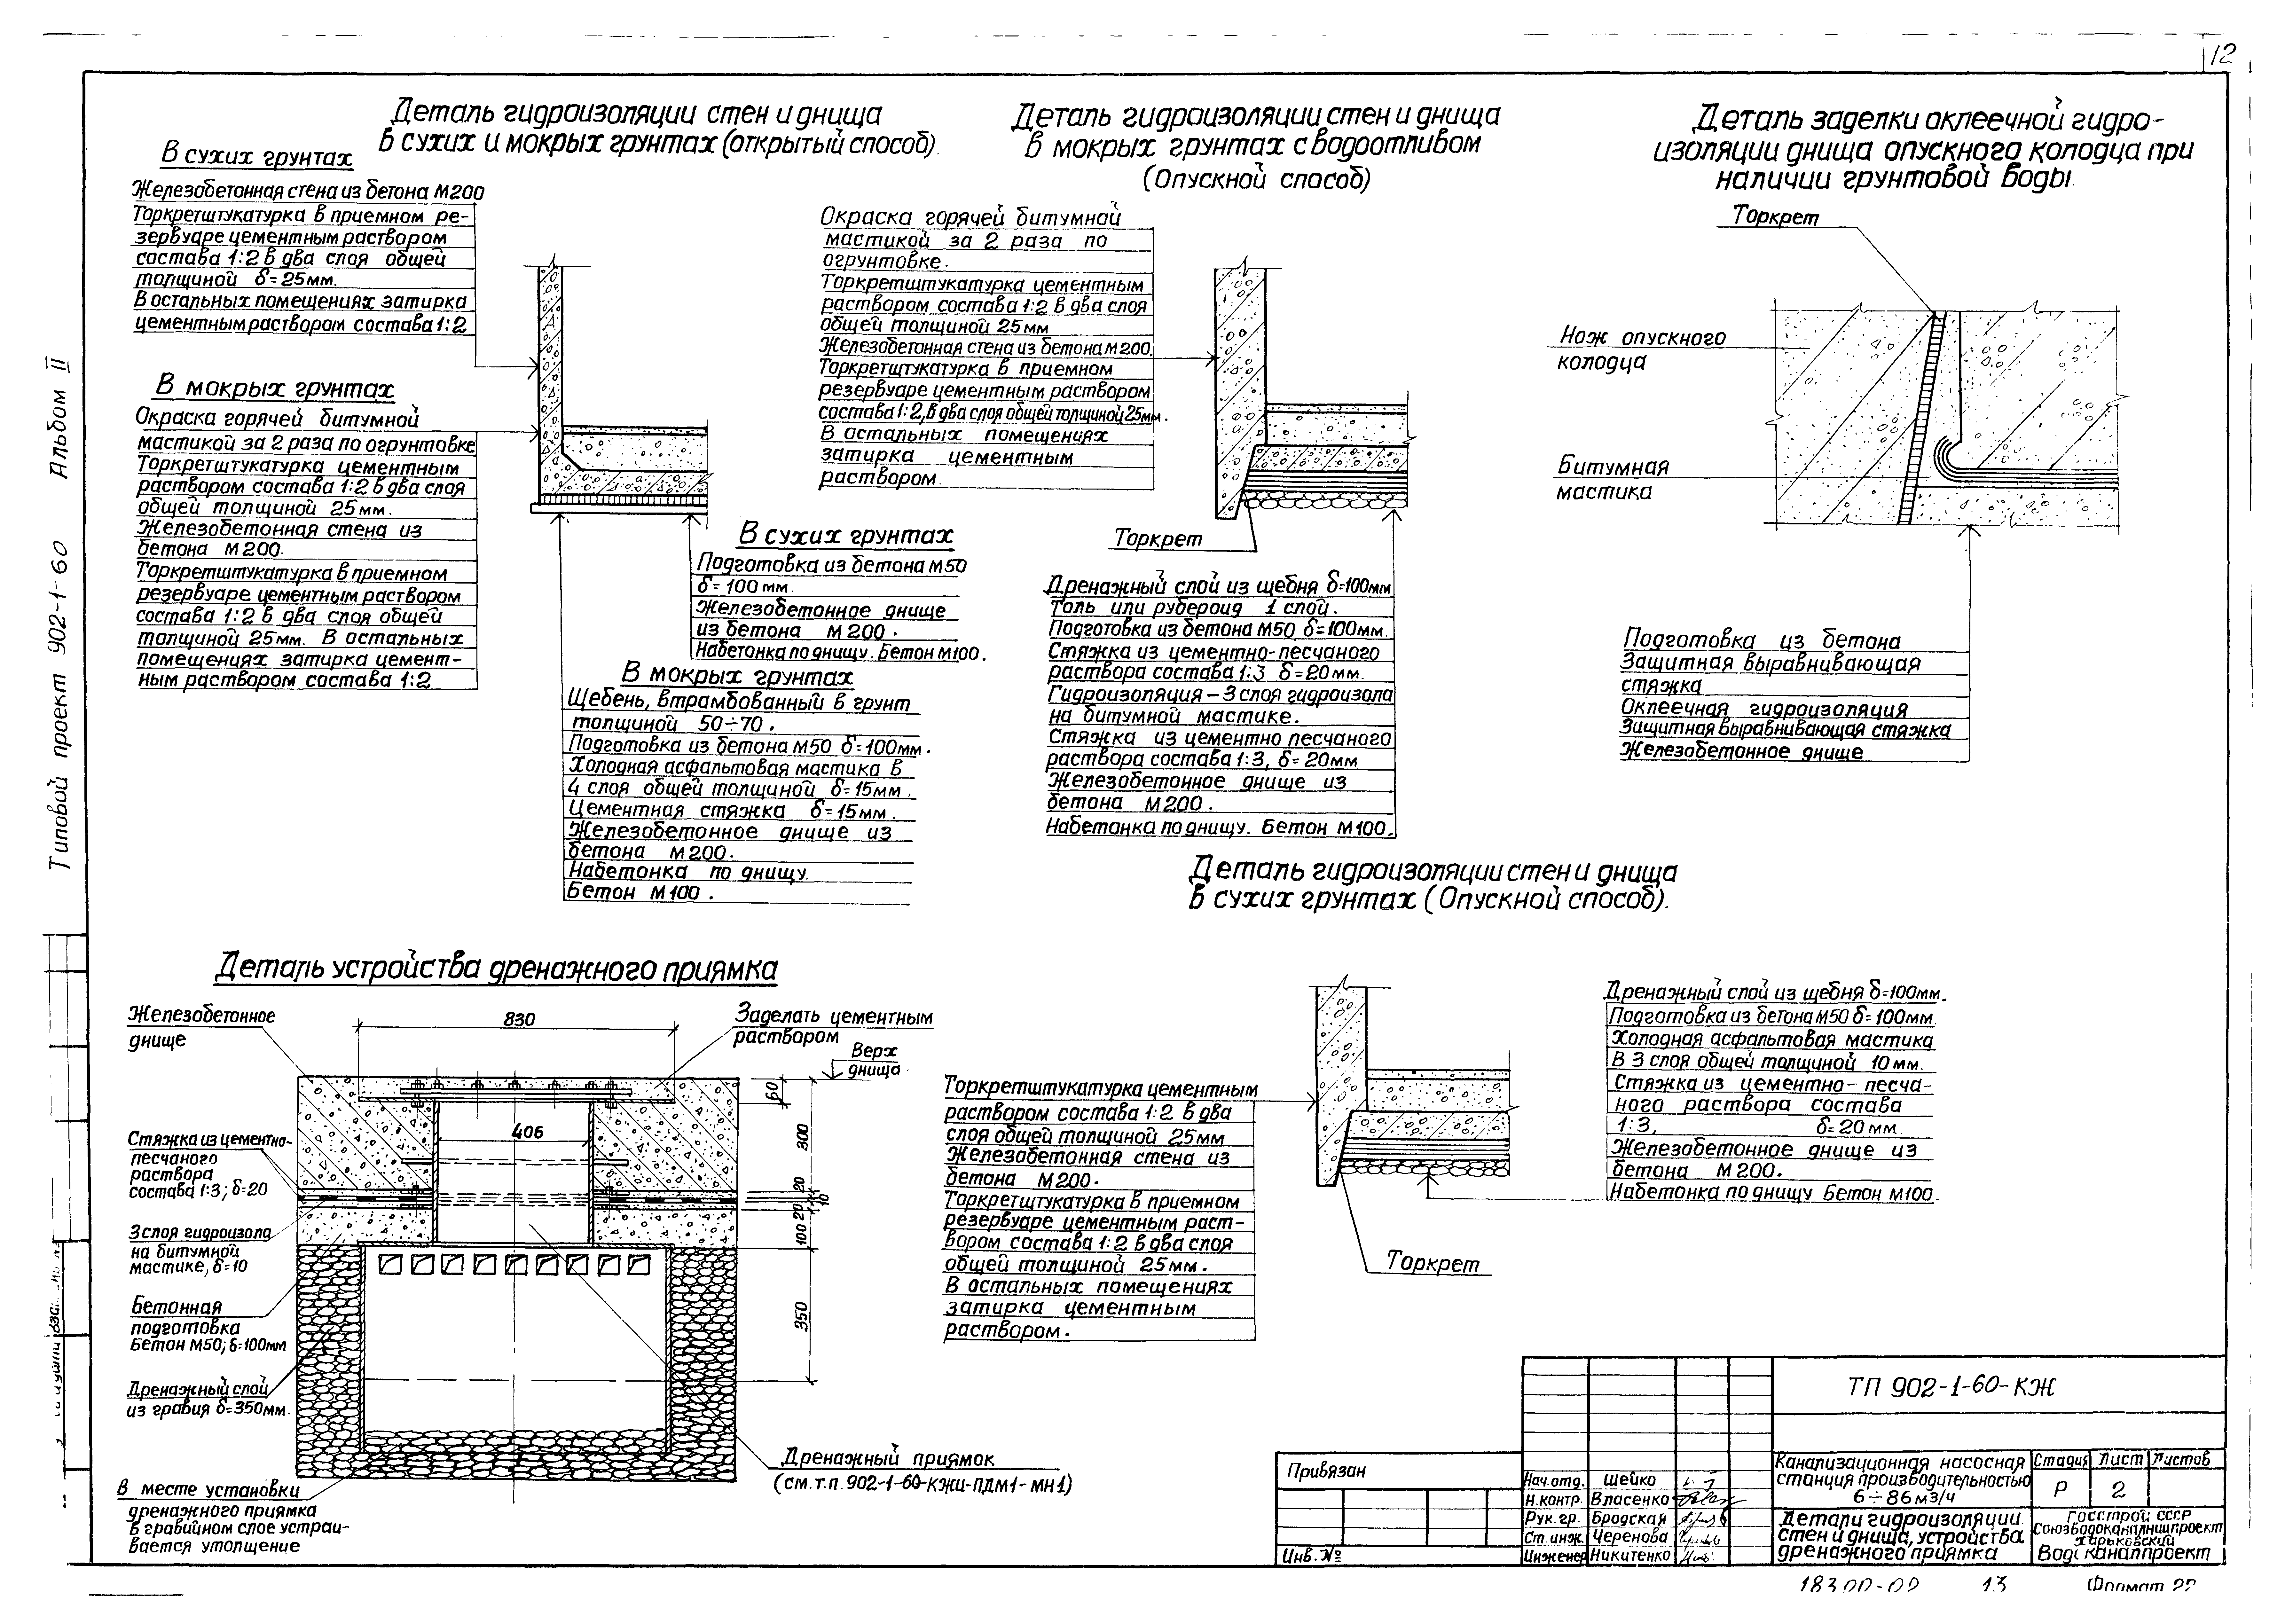 12
Альбом II
Типовой проект 902-1-60
Деталь гидроизоляции стен и днища
в сухих и мокрых грунтах (открытый способ).
В сухих грунтах
Железобетонная стена из бетона М200
Торкретштукатурка в приемном ре-
зервуаре цементным раствором
состава 1:2 в два слоя общей
толщиной δ=25мм.
В остальных помещениях затирка
цементным раствором состава 1:2
В мокрых грунтах
Окраска горячей битумной
мастикой за 2 раза по огрунтовке
Торкретштукатурка цементным
раствором состава 1:2 в два слоя
общей толщиной 25мм.
Железобетонная стена из
бетона М200.
Торкретштукатурка в приемном
резервуаре цементным раствором
состава 1:2 в два слоя общей
толщиной 25мм. В остальных
помещениях затирка цемент-
ным раствором состава 1:2
В сухих грунтах
Подготовка из бетона М50
δ=100мм.
Железобетонное днище
из бетона М200.
Набетонка по днищу. Бетон М100.
В мокрых грунтах
Щебень, втрамбованный в грунт
толщиной 50÷70.
Подготовка из бетона М50 δ=100мм.
Холодная асфальтовая мастика в
4 слоя общей толщиной δ=15мм.
Цементная стяжка δ=15мм.
Железобетонное днище из
бетона М200.
Набетонка по днищу.
Бетон М100.
Деталь гидроизоляции стен и днища
в мокрых грунтах с водоотливом
(Опускной способ)
Окраска горячей битумной
мастикой за 2 раза по
огрунтовке.
Торкретштукатурка цементным
раствором состава 1:2 в два слоя
общей толщиной 25мм
Железобетонная стена из бетона М200.
Торкретштукатурка в приемном
резервуаре цементным раствором
состава 1:2, в два слоя общей толщиной 25мм.
В остальных помещениях
затирка цементным
раствором.
Торкрет
Дренажный слой из щебня δ=100мм
Толь или рубероид 1 слой.
Подготовка из бетона М50 δ=100мм.
Стяжка из цементно-песчаного
раствора состава 1:3 δ=20мм.
Гидроизоляция-3 слоя гидроизола
на битумной мастике.
Стяжка из цементно песчаного
раствора состава 1:3, δ=20мм
Железобетонное днище из
бетона М200.
Набетонка по днищу. Бетон М100.
Деталь заделки оклеечной гидро-
изоляции днища опускного колодца при
наличии грунтовой воды.
Торкрет
Нож опускного
колодца
Битумная
мастика
Подготовка из бетона
Защитная выравнивающая
стяжка
Оклеечная гидроизоляция
Защитная выравнивающая стяжка
Железобетонное днище
Деталь гидроизоляции стен и днища
в сухих грунтах (Опускной способ).
Торкретштукатурка цементным
раствором состава 1:2 в два
слоя общей толщиной 25мм
Железобетонная стена из
бетона М200.
Торкретштукатурка в приемном
резервуаре цементным раст-
вором состава 1:2 в два слоя
общей толщиной 25мм.
В остальных помещениях
затирка цементным
раствором.
Торкрет
Дренажный слой из щебня δ=100мм.
Подготовка из бетона М50 δ=100мм.
Холодная асфальтовая мастика
в 3 слоя общей толщиной 10мм.
Стяжка из цементно-песча-
ного раствора состава
1:3, δ=20мм.
Железобетонное днище из
бетона М200.
Набетонка по днищу. Бетон М100.
Деталь устройства дренажного приямка
Железобетонное
днище
830
Заделать цементным
раствором
Верх
днища
60
406
300
Стяжка из цементно-
песчаного
раствора
состава 1:3; δ=20
20
10
20
100
3 слоя гидроизола
на битумной
мастике, δ=10
Бетонная
подготовка
Бетон М50; δ=100мм
350
Дренажный слой
из гравия δ=350мм.
Дренажный приямок
(см.т.п. 902-1-60-КЖИ-ПДМ1-МН1)
В месте установки
дренажного приямка
в гравийном слое устраи-
вается утолщение
Привязан
Инв. №
Нач.отд. Шейко
Н.контр. Власенко
Рук.гр. Бродская
Ст.инж. Черенова
Инженер Никитенко
ТП 902-1-60-КЖ
Канализационная насосная
станция производительностью
6÷86 м3/ч
Стадия Лист Листов
Р 2
Детали гидроизоляции
стен и днища, устройства
дренажного приямка
Госстрой СССР
Союзводоканалниипроект
Харьковский
Водоканалпроект
18300-02 13 Формат 22